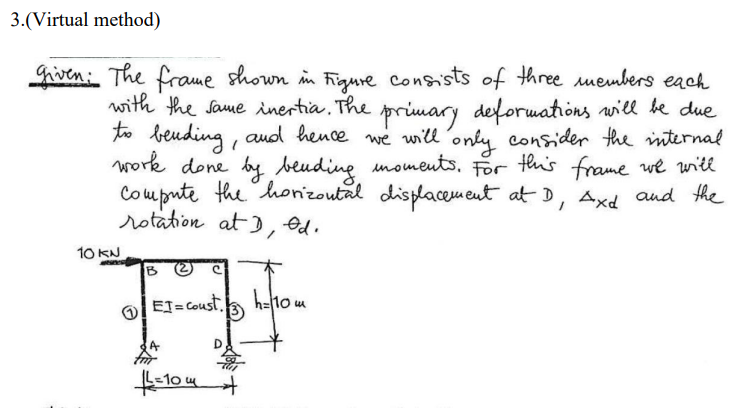 3.(Virtual method)
Given: The frame shown in Figure consists of three members each
with the same inertia. The primary deformations will be due
to bending, and hence we will only consider the internal
work done by bending moments. For this frame we will
compute the horizontal displacement at D, Δxd and the
rotation at D, θd.
10 KN
B ② C
① EI=const. ③ h=10 m
A D
L=10 m